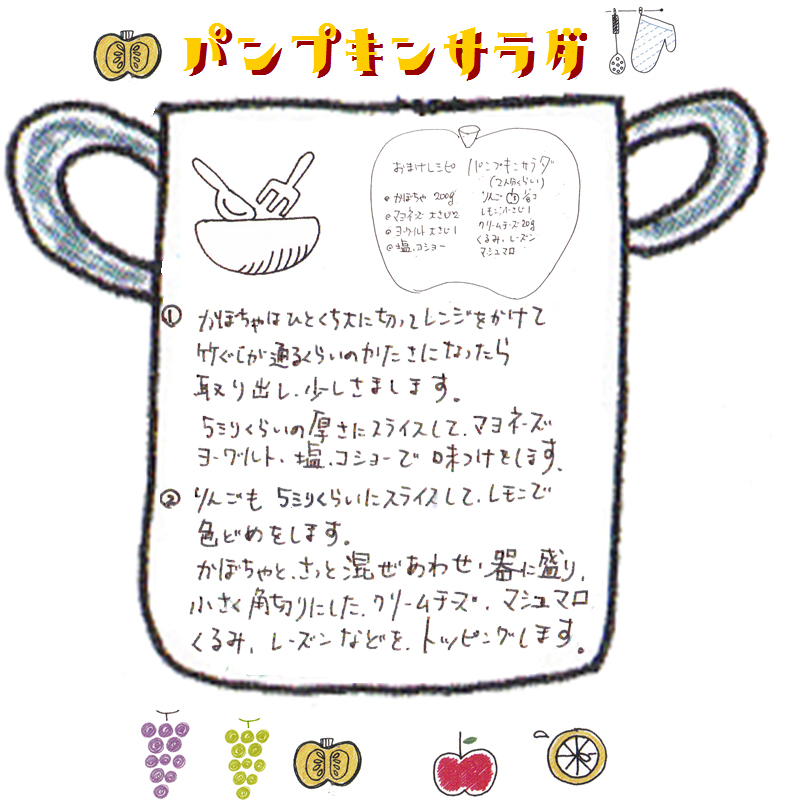 パンプキンサラダ
おまけレシピ パンプキンサラダ
(2人分くらい)
かぼちゃ 200g
マヨネーズ 大さじ2
ヨーグルト 大さじ1
塩、コショー
りんご 1/8コ
レモン小さじ1
クリームチーズ20g
くるみ、レーズン
マシュマロ
① かぼちゃはひとくち大に切ってレンジをかけて
竹ぐしが通るくらいのかたさになったら
取り出し、少しさまします。
5ミリくらいの厚さにスライスして、マヨネーズ
ヨーグルト、塩、コショーで味つけをします。
② りんごも5ミリくらいにスライスして、レモンで
色どめをします。
かぼちゃと、さっと混ぜあわせ、器に盛り、
小さく角切りにした、クリームチーズ、マシュマロ
くるみ、レーズンなどを、トッピングします。